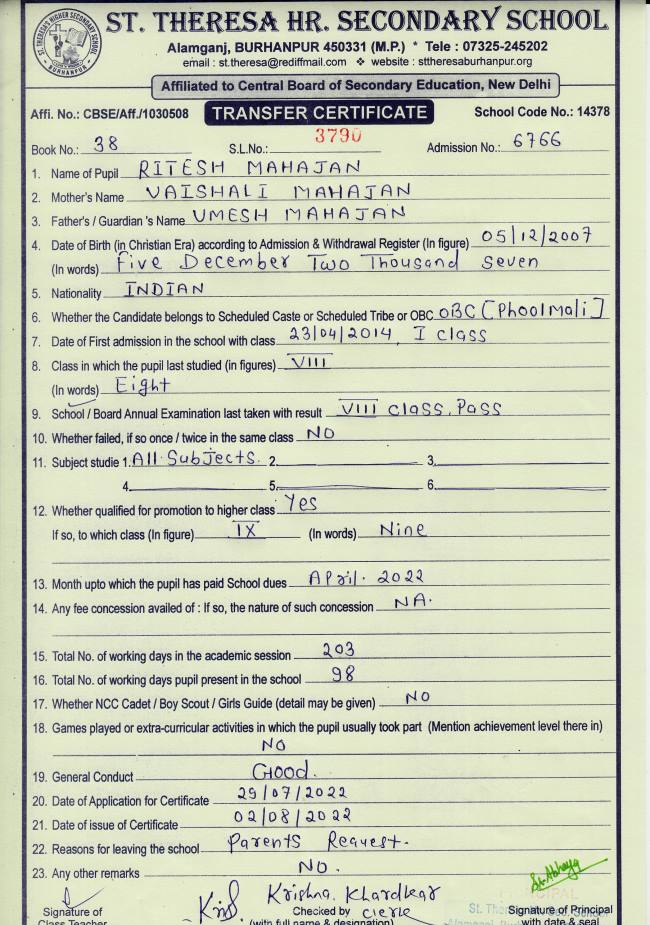 ST. THERESA HR. SECONDARY SCHOOL
Alamganj, BURHANPUR 450331 (M.P.) * Tele : 07325-245202
email : st.theresa@rediffmail.com ❖ website : sttheresaburhanpur.org
Affiliated to Central Board of Secondary Education, New Delhi
Affi. No.: CBSE/Aff./1030508 TRANSFER CERTIFICATE School Code No.: 14378
Book No.: 38 S.L.No.: 3790 Admission No.: 6766
1. Name of Pupil RITESH MAHAJAN
2. Mother's Name VAISHALI MAHAJAN
3. Father's / Guardian 's Name UMESH MAHAJAN
4. Date of Birth (in Christian Era) according to Admission & Withdrawal Register (In figure) 05/12/2007
(In words) Five December Two Thousand Seven
5. Nationality INDIAN
6. Whether the Candidate belongs to Scheduled Caste or Scheduled Tribe or OBC OBC [Phoolmali]
7. Date of First admission in the school with class 23/04/2014, I class
8. Class in which the pupil last studied (in figures) VIII
(In words) Eight
9. School / Board Annual Examination last taken with result VIII class, Pass
10. Whether failed, if so once / twice in the same class NO
11. Subject studie 1. All Subjects. 2. 3.
4. 5. 6.
12. Whether qualified for promotion to higher class Yes
If so, to which class (In figure) IX (In words) Nine
13. Month upto which the pupil has paid School dues April. 2022
14. Any fee concession availed of : If so, the nature of such concession NA.
15. Total No. of working days in the academic session 203
16. Total No. of working days pupil present in the school 98
17. Whether NCC Cadet / Boy Scout / Girls Guide (detail may be given) NO
18. Games played or extra-curricular activities in which the pupil usually took part (Mention achievement level there in)
NO
19. General Conduct Good.
20. Date of Application for Certificate 29/07/2022
21. Date of issue of Certificate 02/08/2022
22. Reasons for leaving the school Parents Request.
23. Any other remarks NO.
Krishna. Khardkar
PRINCIPAL
Signature of Checked by clerk Signature of Principal
Class Teacher (with full name & designation) with date & seal